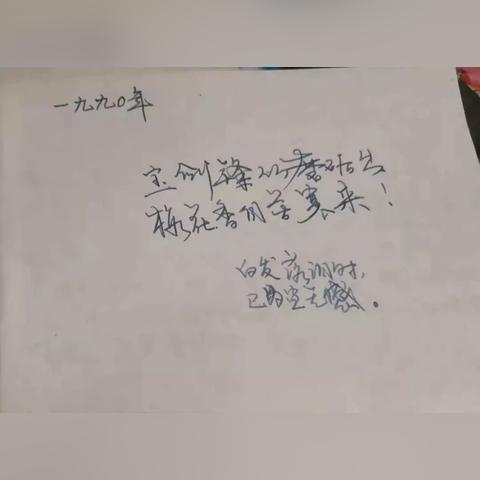 一九九〇年
宝剑锋从磨砺出
梅花香自苦寒来！
白发落泪时，
已回望无憾。